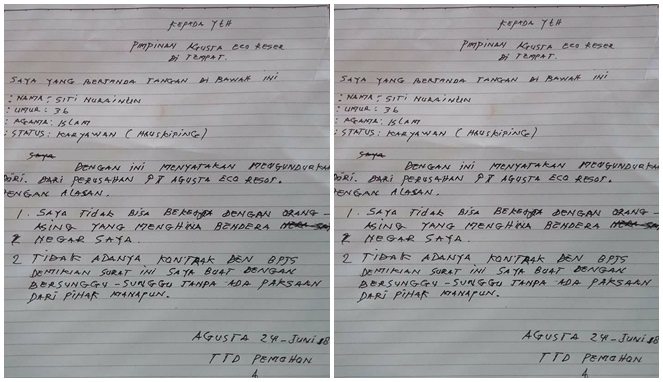 KEPADA YtH
PIMPINAN AGUSTA ECO RESER
DI TEMPAT.
SAYA YANG BERTANDA TANGAN DI BAWAH INI
: NAMA : SITI NURAINUN
: UMUR : 36
: AGAMA : ISLAM
: STATUS : KARYAWAN ( HAUSKIPING )
Saya
DENGAN INI MENYATAKAN MENGUNDURKAN
DIRI. DARI PERUSAHAN PT AGUSTA ECO RESOT.
DENGAN ALASAN.
1. SAYA TIDAK BISA BEKERJA DENGAN ORANG-
ASING YANG MENGHINA BENDERA
2 NEGAR SAYA.
2 TIDAK ADANYA KONTRAK DEN BPJS
DEMIKIAN SURAT INI SAYA BUAT DENGAN
BERSUNGGU-SUNGGU TANPA ADA PAKSAAN
DARI PIHAK MANAPUN.
AGUSTA 24-JUNI 18
TTD PEMOHON
KEPADA YtH
PIMPINAN AGUSTA ECO RESER
DI TEMPAT.
SAYA YANG BERTANDA TANGAN DI BAWAH INI
: NAMA : SITI NURAINUN
: UMUR : 36
: AGAMA : ISLAM
: STATUS : KARYAWAN ( HAUSKIPING )
Saya
DENGAN INI MENYATAKAN MENGUNDURKAN
DIRI. DARI PERUSAHAN PT AGUSTA ECO RESOT.
DENGAN ALASAN.
1. SAYA TIDAK BISA BEKERJA DENGAN ORANG-
ASING YANG MENGHINA BENDERA
2 NEGAR SAYA.
2 TIDAK ADANYA KONTRAK DEN BPJS
DEMIKIAN SURAT INI SAYA BUAT DENGAN
BERSUNGGU-SUNGGU TANPA ADA PAKSAAN
DARI PIHAK MANAPUN.
AGUSTA 24-JUNI 18
TTD PEMOHON